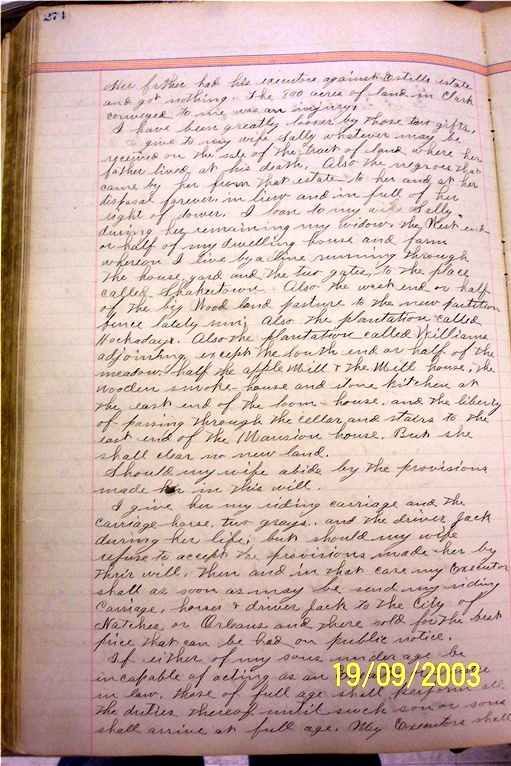 274
her father had his executors against Estills estate
and got nothing. The 800 acres of land in Clark
conveyed to me was an injury.
I have been greatly looser by those two gifts.
I give to my wife Sally whatever may be
received on the sale of the tract of land where her
father lived at his death. Also the negroes that
came by her from that estate to her and at her
disposal farever in liew and in full of her
right of dower. I loan to my wife Sally
during her remaining my widow, the West end
or half of my dwelling house and farm
whereon I live by a line running through
the house, yard and the two gates, to the place
called Shakertown. Also the west end or half
of the big Wood land pasture to the new partition
fence lately run, Also the plantation called
Hockadays. Also the plantation called Williams
adjoining except the South end or half of the
meadow half the apple Mill & the Mill house, the
wooden smoke-house and stone kitchen at
the east end of the loom-house, and the liberty
of passing through the cellar and stairs to the
east end of the Mansion house. But she
shall clear no new land.
Should my wife abide by the provisions
made her in this will.
I give her my riding carriage and the
carriage horse, two grays, and the driver Jack
during her life; but should my wife
refuse to accept the provisions made her by
their will, then and in that case my Executor
shall as soon as may be send my riding
Carriage, horses & driver Jack to the City of
Natches or Orleans and there sold for the best
price that can be had on public notice.
If either of my sons under age be
incapable of acting as an
in law, those of full age shall perform all
the duties thereof until such son or sons
shall arrive at full age. My Executors shall
19/09/2003